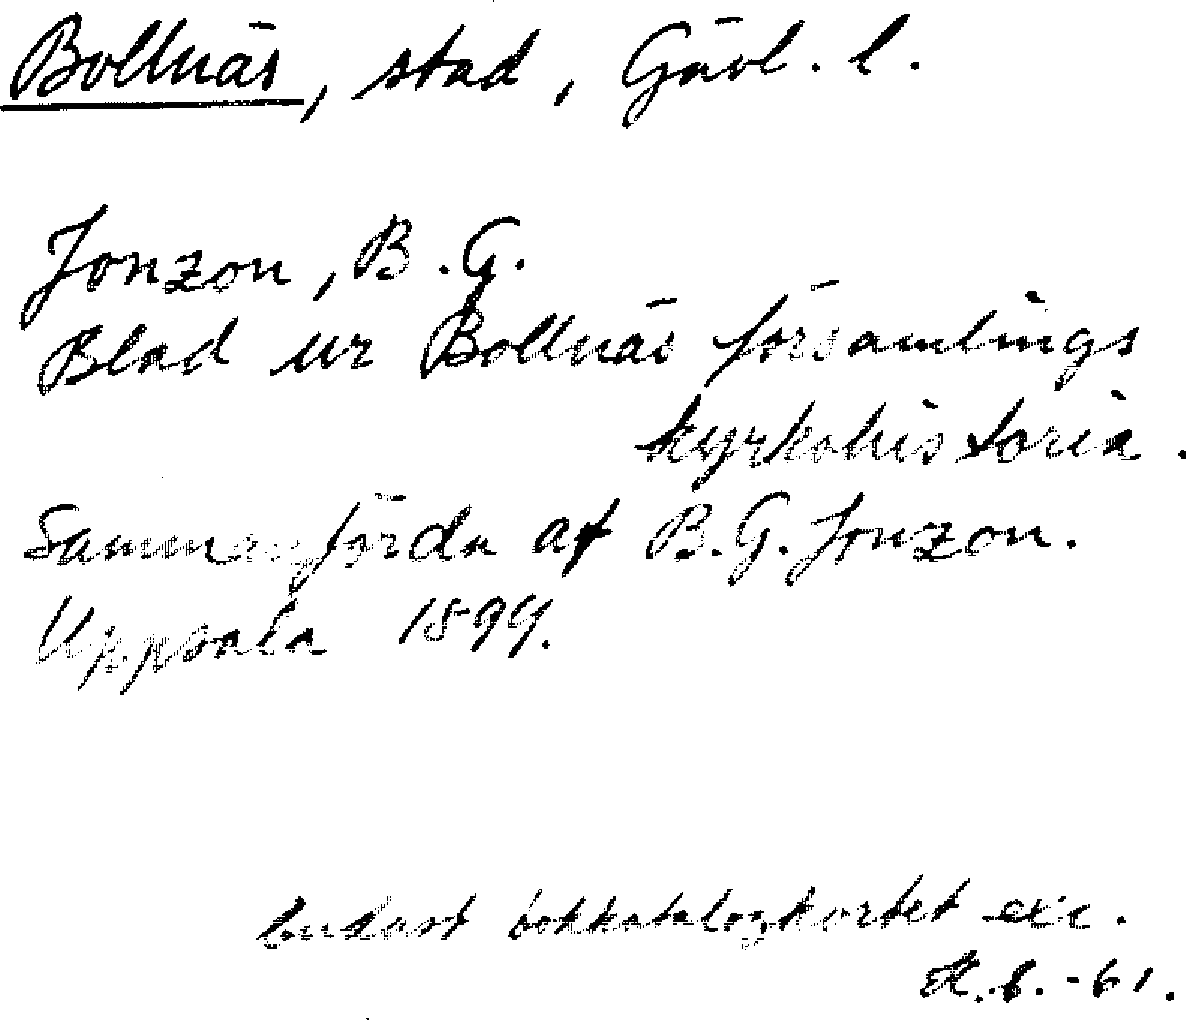 Bollnäs, stad, Gävl. l.
Jonzon, B.G.
Blad ur Bollnäs församlings
kyrkohistoria.
Sammanförda af B.G. Jonzon.
Uppsala 1899.
Endast bokkatalogkortet exc.
-61.